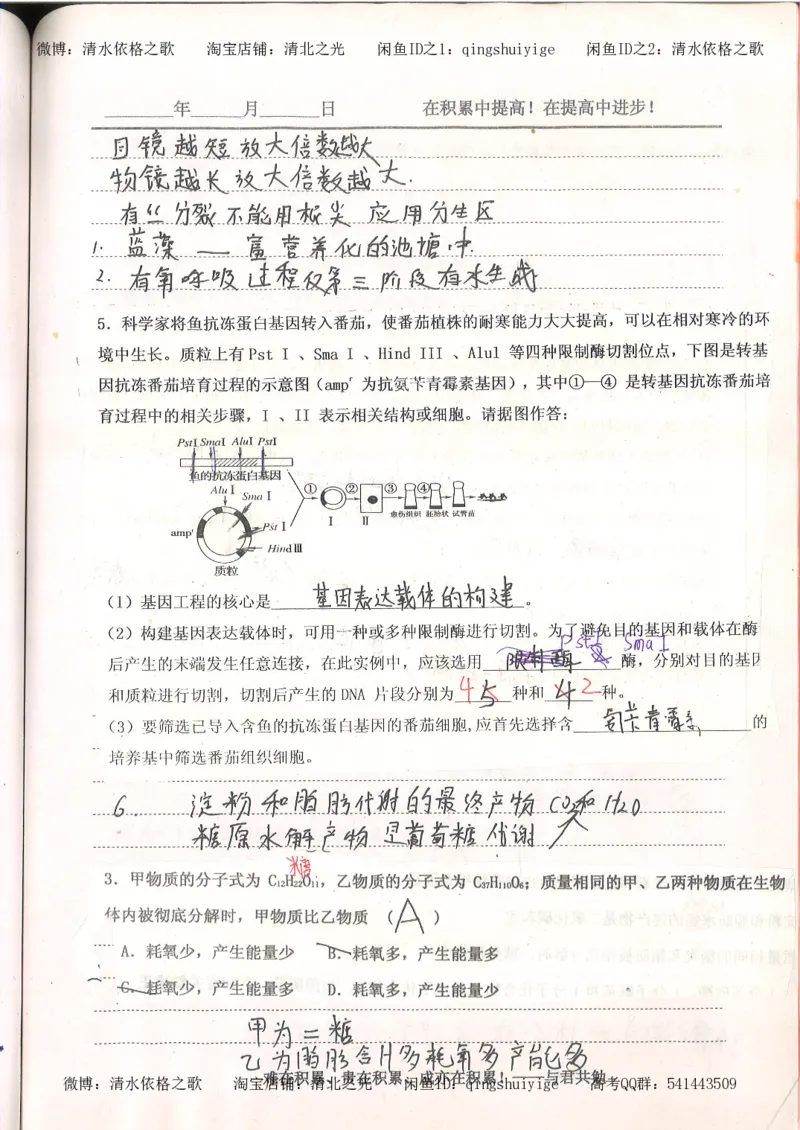 微博：清水依格之歌 淘宝店铺：清北之光 闲鱼ID之1：qingshuiyige 闲鱼ID之2：清水依格之歌
年 月 日 在积累中提高！在提高中进步！
目镜越短放大倍数越大
物镜越长放大倍数越大.
有丝分裂不能用根尖 应用分生区
1. 蓝藻 — 富营养化的池塘中.
2. 有氧呼吸过程仅第三阶段有水生成
5. 科学家将鱼抗冻蛋白基因转入番茄，使番茄植株的耐寒能力大大提高，可以在相对寒冷的环
境中生长。质粒上有 Pst I 、Sma I 、Hind III 、Alul 等四种限制酶切割位点，下图是转基
因抗冻番茄培育过程的示意图（ampʳ 为抗氨苄青霉素基因），其中①—④ 是转基因抗冻番茄培
育过程中的相关步骤，I 、II 表示相关结构或细胞。请据图作答：
PstⅠ SmaⅠ AluⅠ PstⅠ
鱼的抗冻蛋白基因
AluⅠ
SmaⅠ
① ② ③ ④
Ⅰ Ⅱ
愈伤组织 胚胎状 试管苗
ampʳ
PstⅠ
HindⅢ
质粒
（1）基因工程的核心是 基因表达载体的构建 。
（2）构建基因表达载体时，可用一种或多种限制酶进行切割。为了避免目的基因和载体在酶
PstI SmaI
后产生的末端发生任意连接，在此实例中，应该选用 限制酶 酶，分别对目的基因
和质粒进行切割，切割后产生的 DNA 片段分别为 4 5 种和 4 2 种。
（3）要筛选已导入含鱼的抗冻蛋白基因的番茄细胞,应首先选择含 氨苄青霉素 的
培养基中筛选番茄组织细胞。
6. 淀粉和脂肪代谢的最终产物 CO2和H2O
糖原水解产物是葡萄糖 代谢
糖
3. 甲物质的分子式为 C₁₂H₂₂O₁₁，乙物质的分子式为 C₃₇H₁₁₀O₆；质量相同的甲、乙两种物质在生物
体内被彻底分解时，甲物质比乙物质 （ A ）
A. 耗氧少，产生能量少 B. 耗氧多，产生能量多
C. 耗氧少，产生能量多 D. 耗氧多，产生能量少
甲为二糖
乙为脂肪含H多耗氧多产能多
难在积累！贵在积累、成亦在积累！——与君共勉
微博：清水依格之歌 淘宝店铺：清北之光 闲鱼ID：qingshuiyige 高考QQ群：541443509